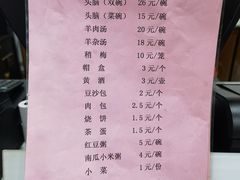 头脑（双碗） 26 元/碗
头脑（菜碗） 15 元/碗
羊肉汤 20 元/碗
羊杂汤 18 元/碗
稍梅 10 元/笼
帽盒 3 元/个
黄酒 3 元/壶
豆沙包 2 元/个
肉包 2.5 元/个
烧饼 1.5 元/个
茶蛋 1.5 元/个
红豆粥 5 元/碗
南瓜小米粥 4 元/碗
小菜 1 元/份